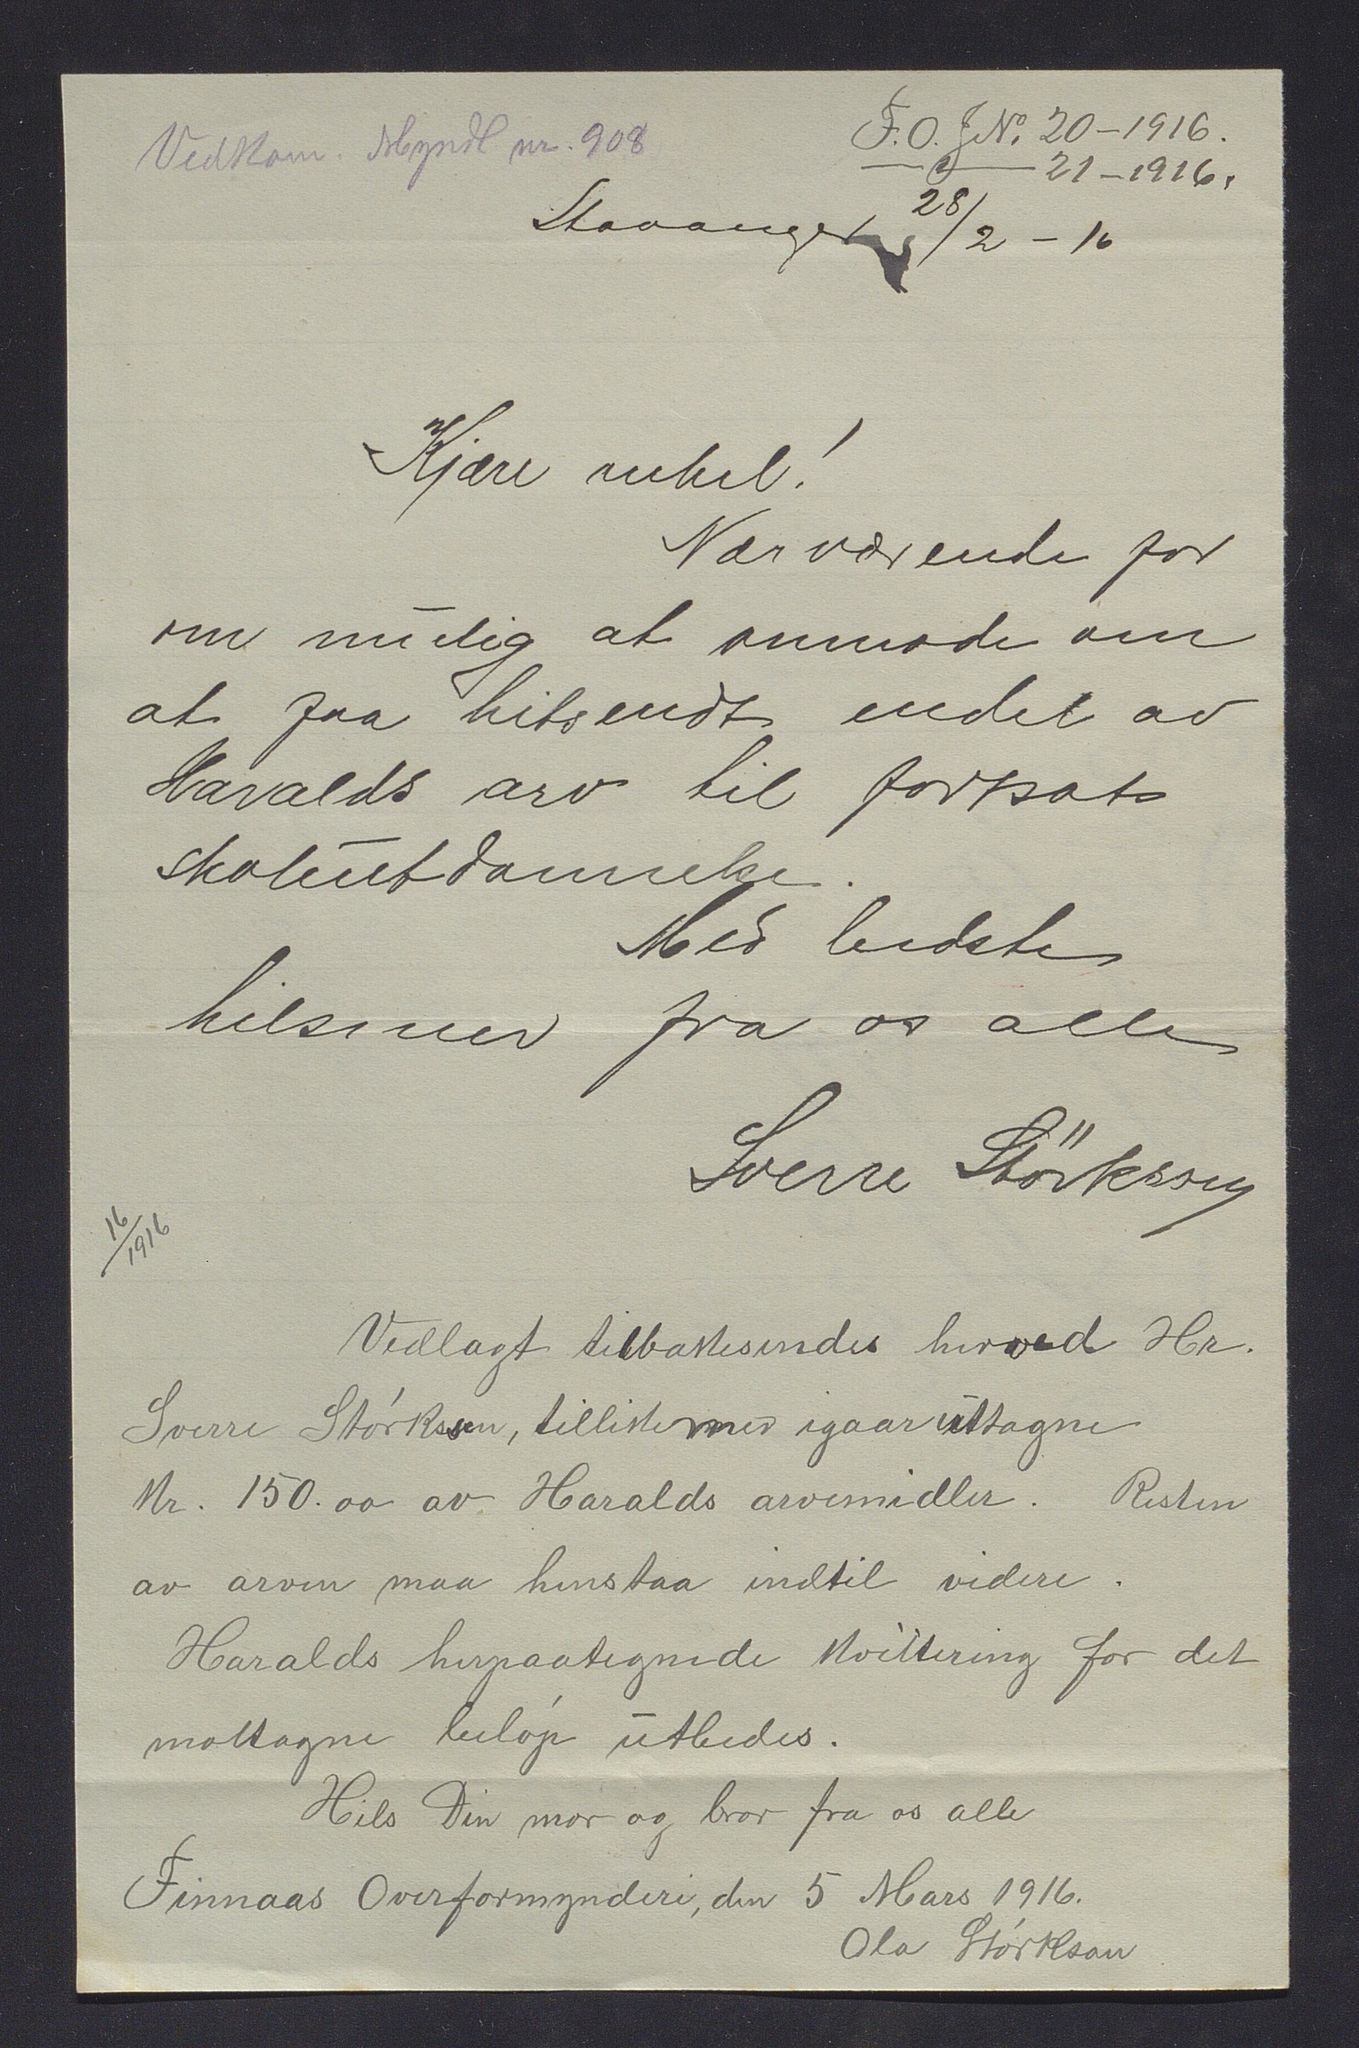 Vedkom. Myndl nr. 908
F.O. J.No. 20-1916.
— " — 21-1916.
Stavanger 28/2 - 16
Kjære onkel!
Nærværende for
om mulig at anmode om
at faa hitsendt endel av
Haralds arv til fortsat
skoleutdannelse.
Med bedste
hilsener fra os alle
Sverre Störkson
16/1916
Vedlagt tilbakesendes herved Hr.
Sverre Störkson, tillikemed igaar uttagne
Kr. 150.00 av Haralds arvemidler. Resten
av arven maa henstaa indtil videre.
Haralds herpaategnede kvittering for det
mottagne beløp utbedes.
Hils Din mor og bror fra os alle
Finnaas Overformynderi, den 5 Mars 1916.
Ola Störkson